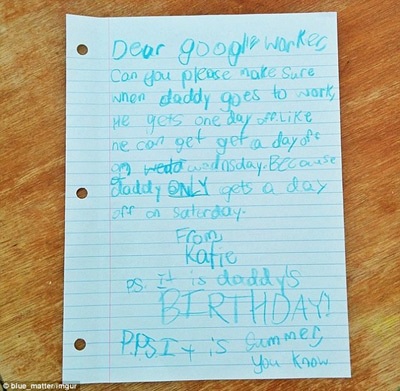 Dear google worker,
Can you please make sure
when daddy goes to work,
He gets one day off. Like
he can get get a day off
on wedd wednsday. BEcause
daddy ONLY gets a day
off on saturday.
From,
Katie
P.S. it is daddy's
BIRTHDAY!
P.P.S It is summer,
you know
© blue_matter/imgur